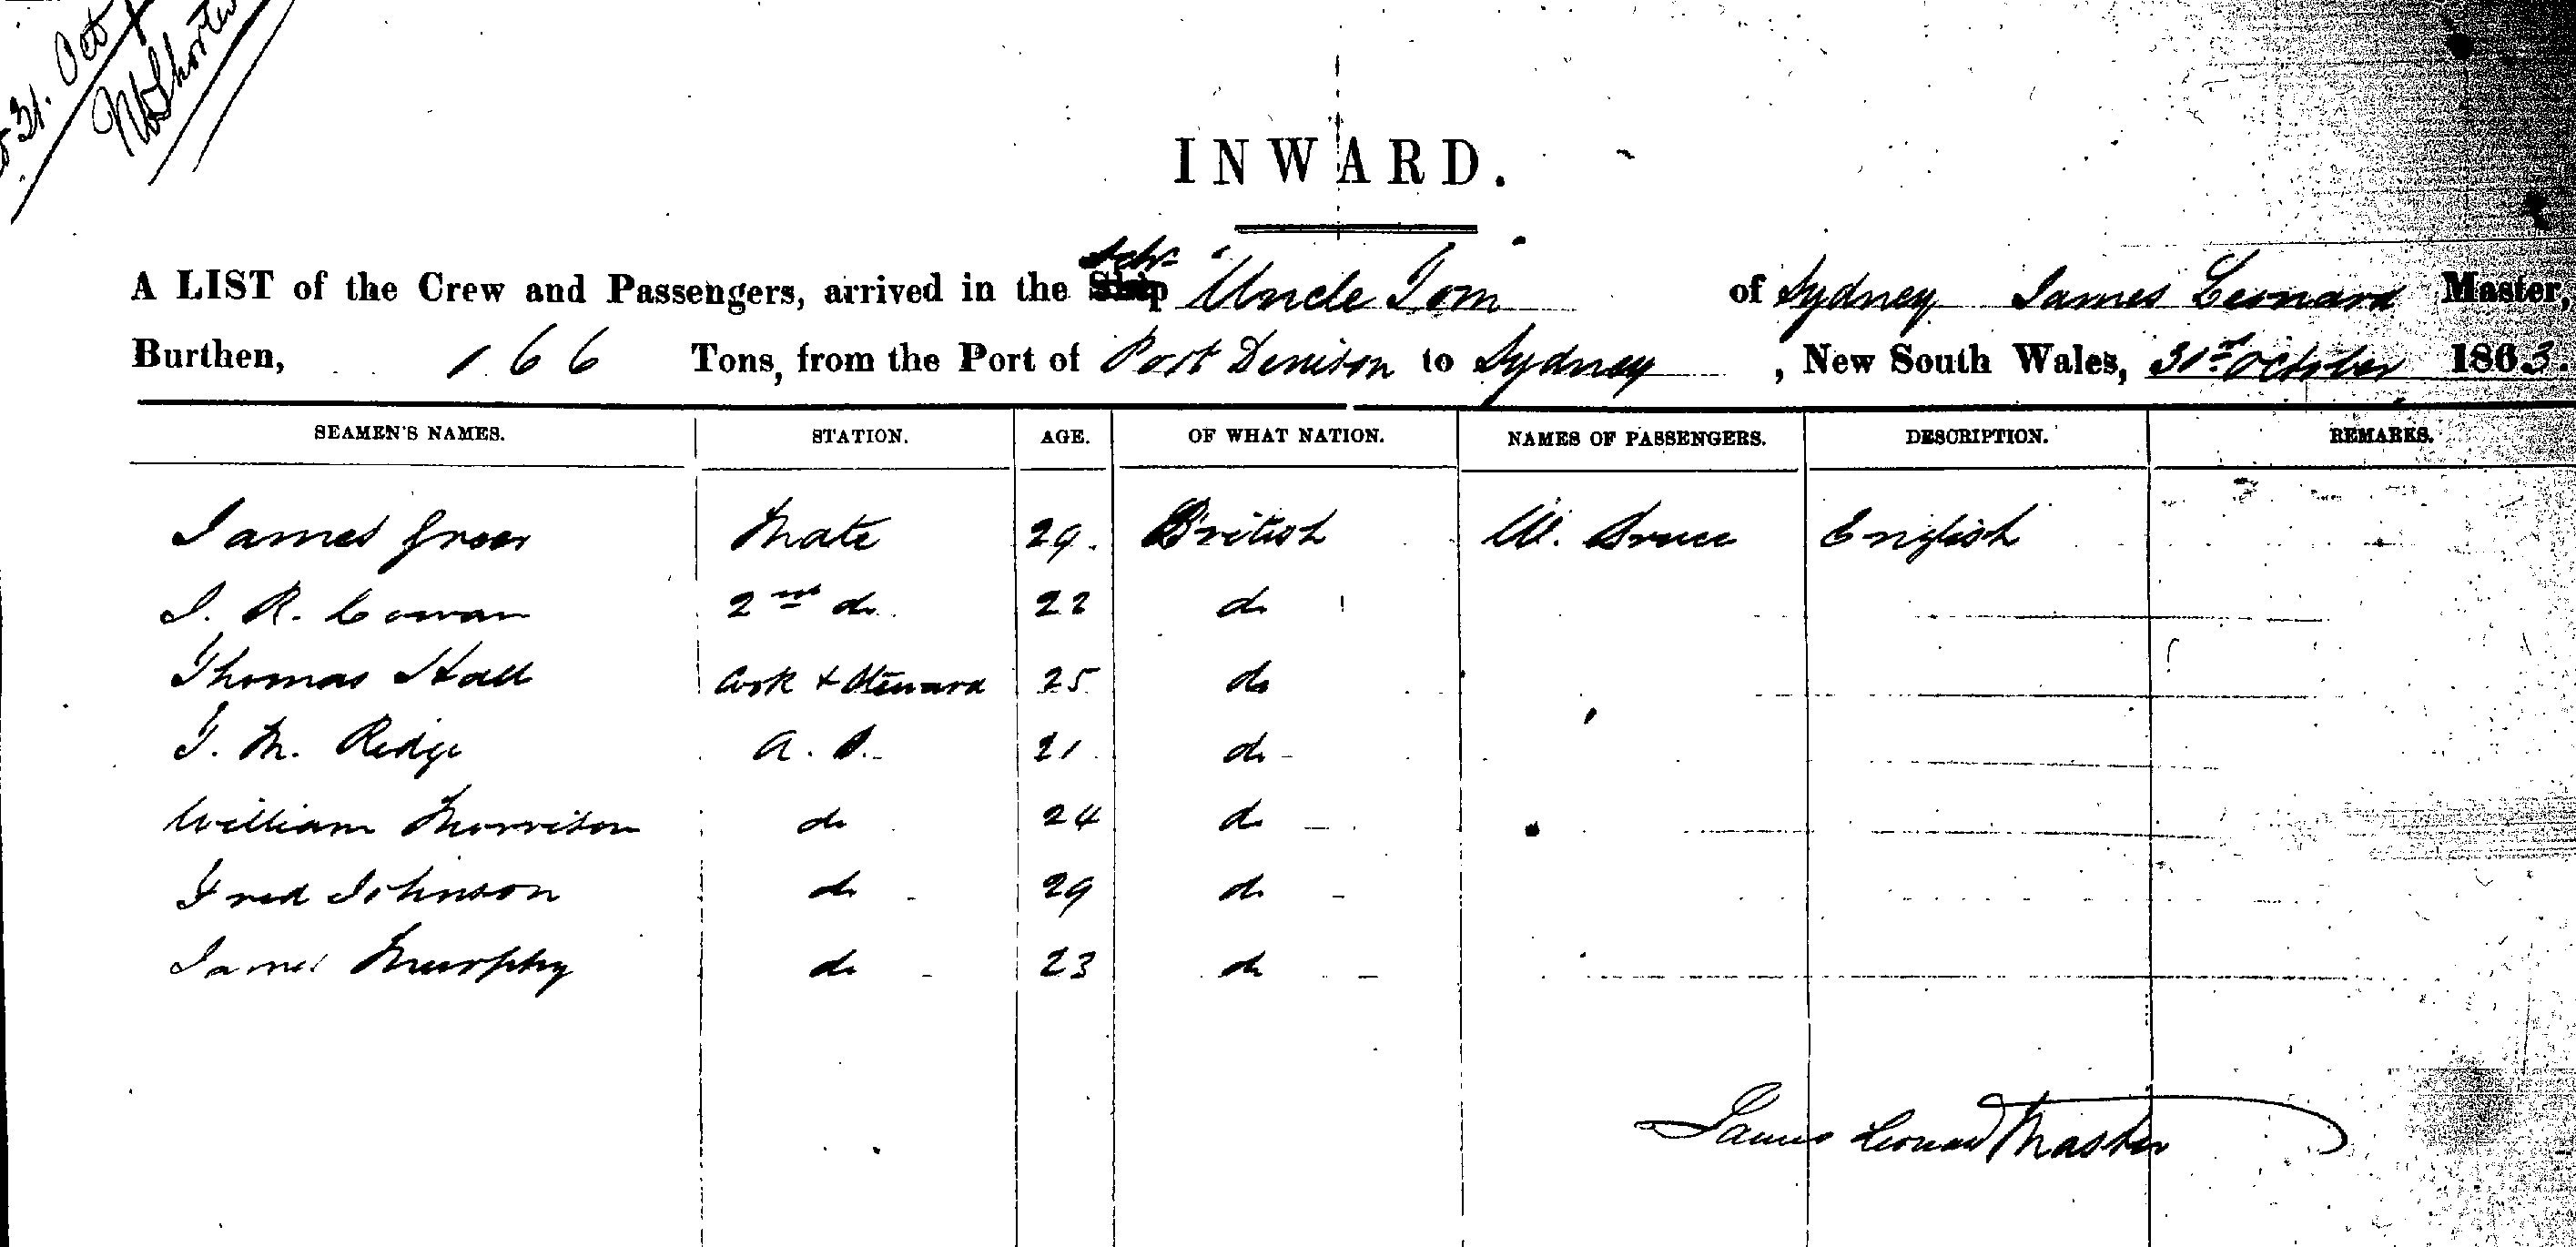 31. Oct
INWARD.
A LIST of the Crew and Passengers, arrived in the Schr "Uncle Tom of Sydney James Leonard Master,
Burthen, 166 Tons, from the Port of Port Denison to Sydney, New South Wales, 31st October 1863.
SEAMEN'S NAMES. STATION. AGE. OF WHAT NATION. NAMES OF PASSENGERS. DESCRIPTION. REMARKS.
James Mate 29. British W. Bruce English
J. R. Cowan 2nd do 22 do
Thomas Hall Cook & Steward 25 do
T. M. Ridge A. B. 21 do
William Morrison do 24 do
Fred Johnson do 29 do
James Murphy do 23 do
James Leonard Master